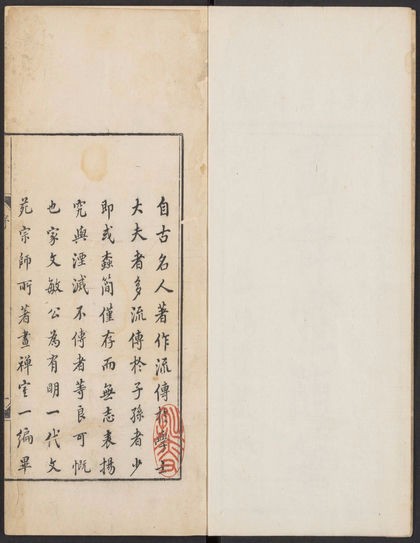 自古名人著作流傳於學士
大夫者多流傳於子孫者少
即或蠧簡僅存而無志表揚
究與湮滅不傳者等良可慨
也家文敏公為有明一代文
苑宗師所著畫禪室一編畢
序